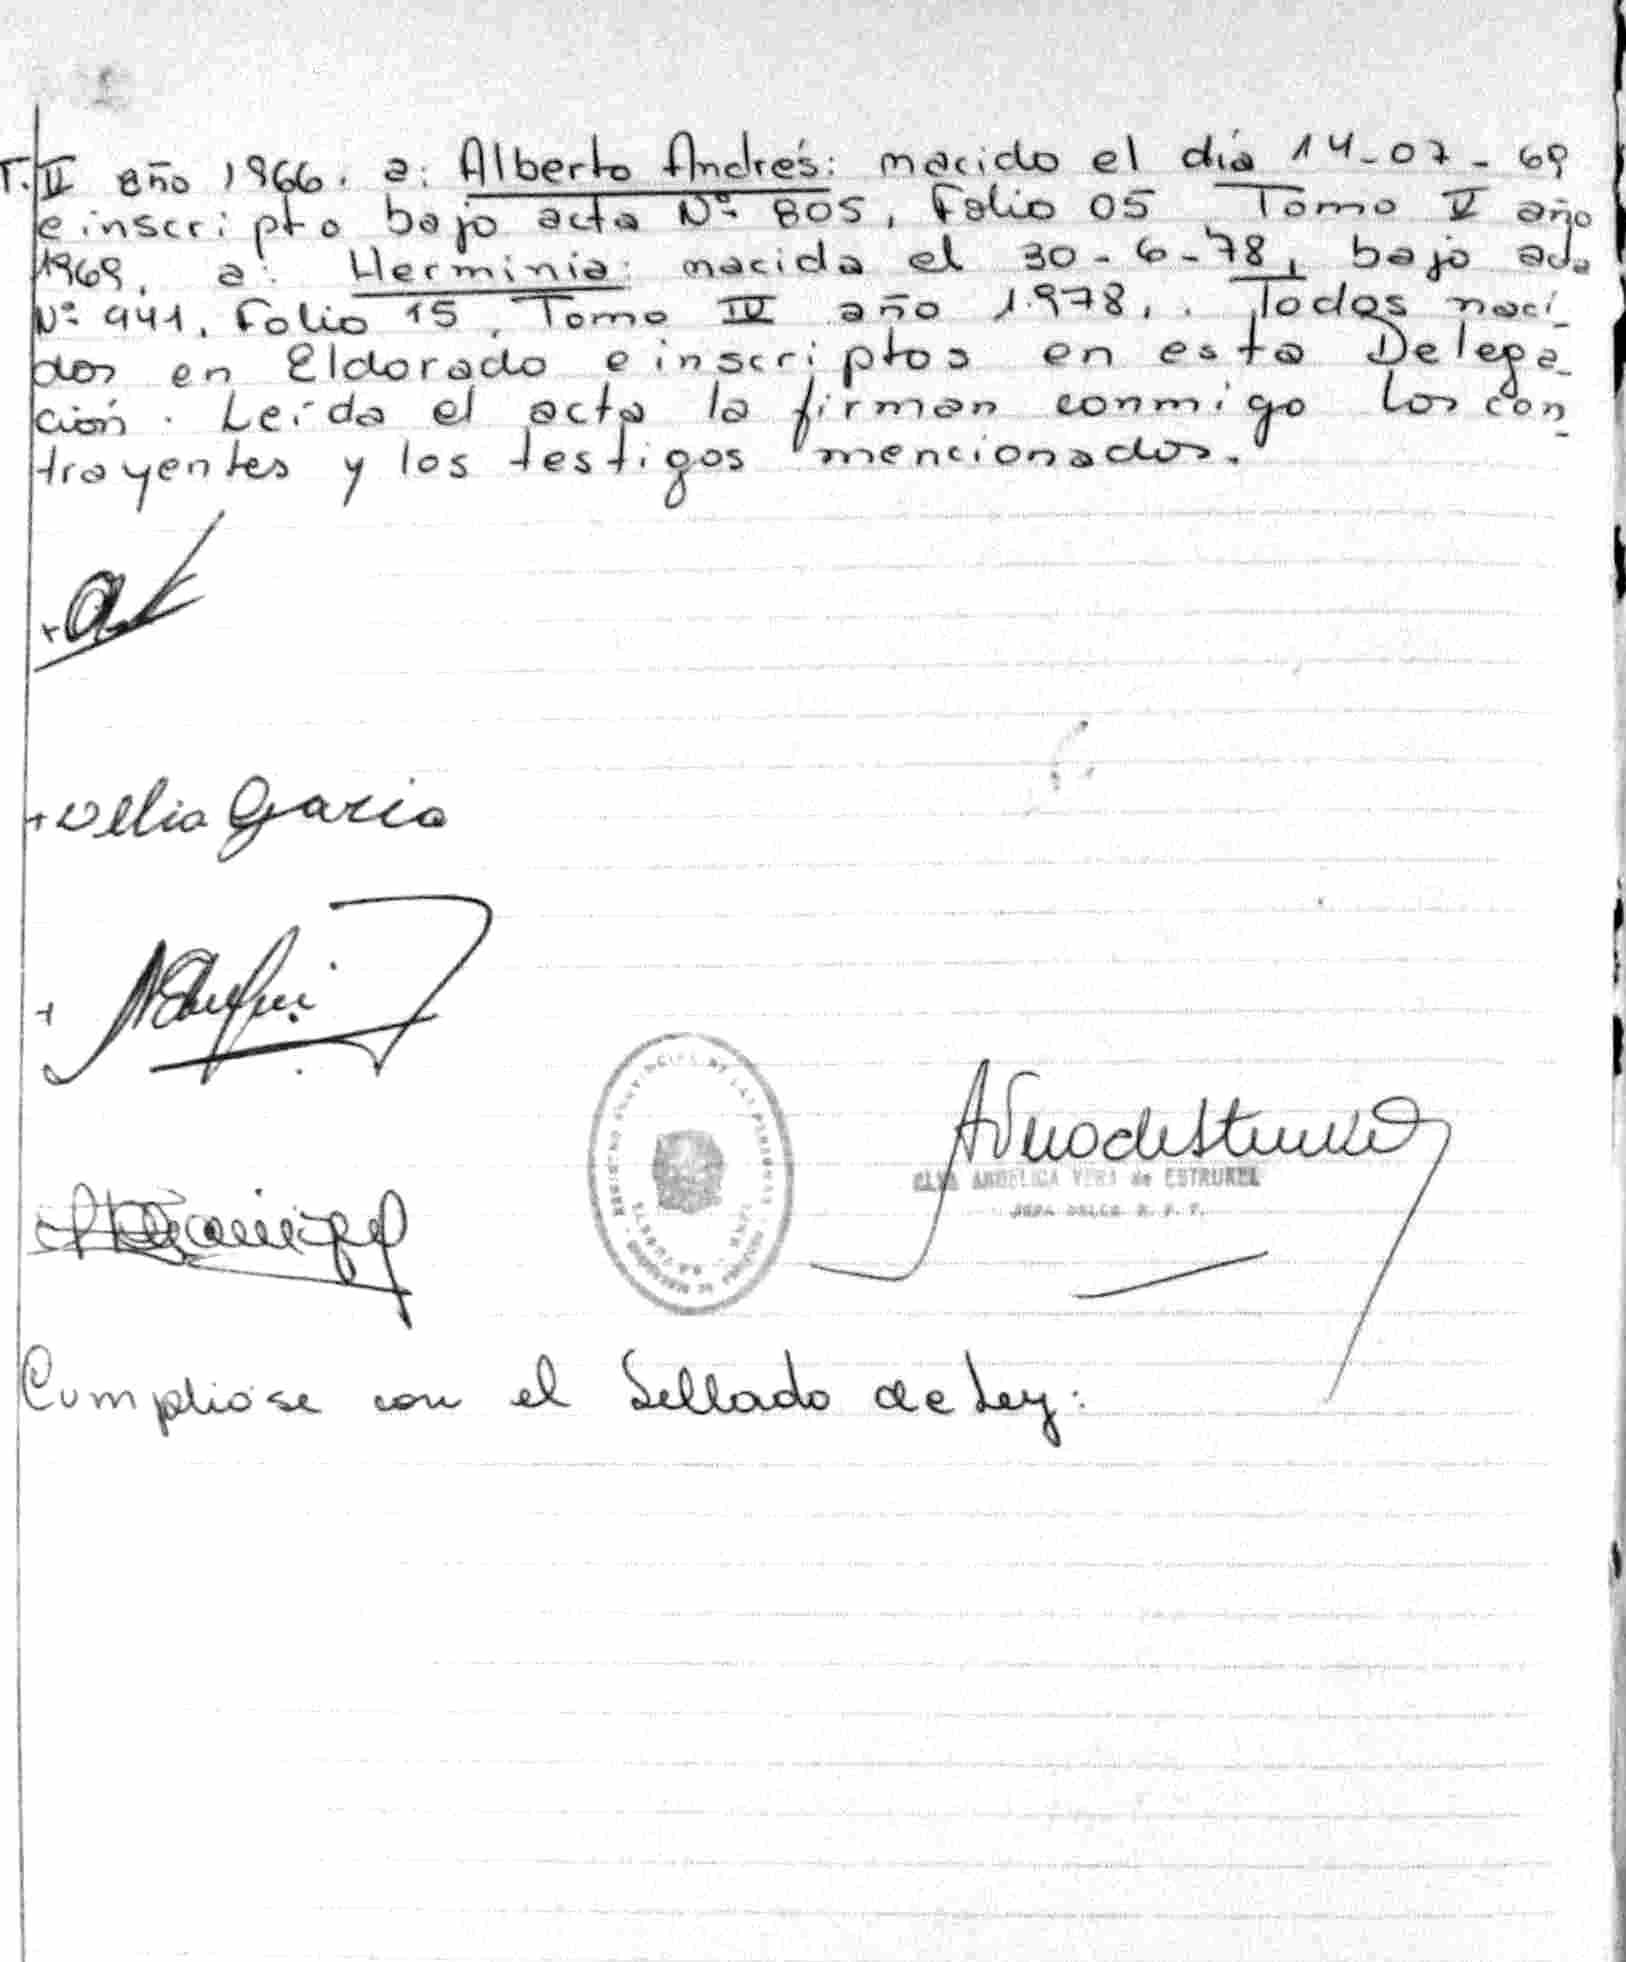 T. II año 1966. a: Alberto Andrés: nacido el día 14-07-69
e inscripto bajo acta Nº 805, Folio 05 Tomo V año
1969, a: Herminia: nacida el 30-6-78, bajo acta
Nº 941, Folio 15, Tomo IV año 1.978,. Todos naci_
dos en Eldorado e inscriptos en esta Delega_
ción. Leída el acta la firman conmigo los con_
trayentes y los testigos mencionados.
Garcia
ANGELICA VERA de ESTRUKEL
Cumplióse con el Sellado de Ley: